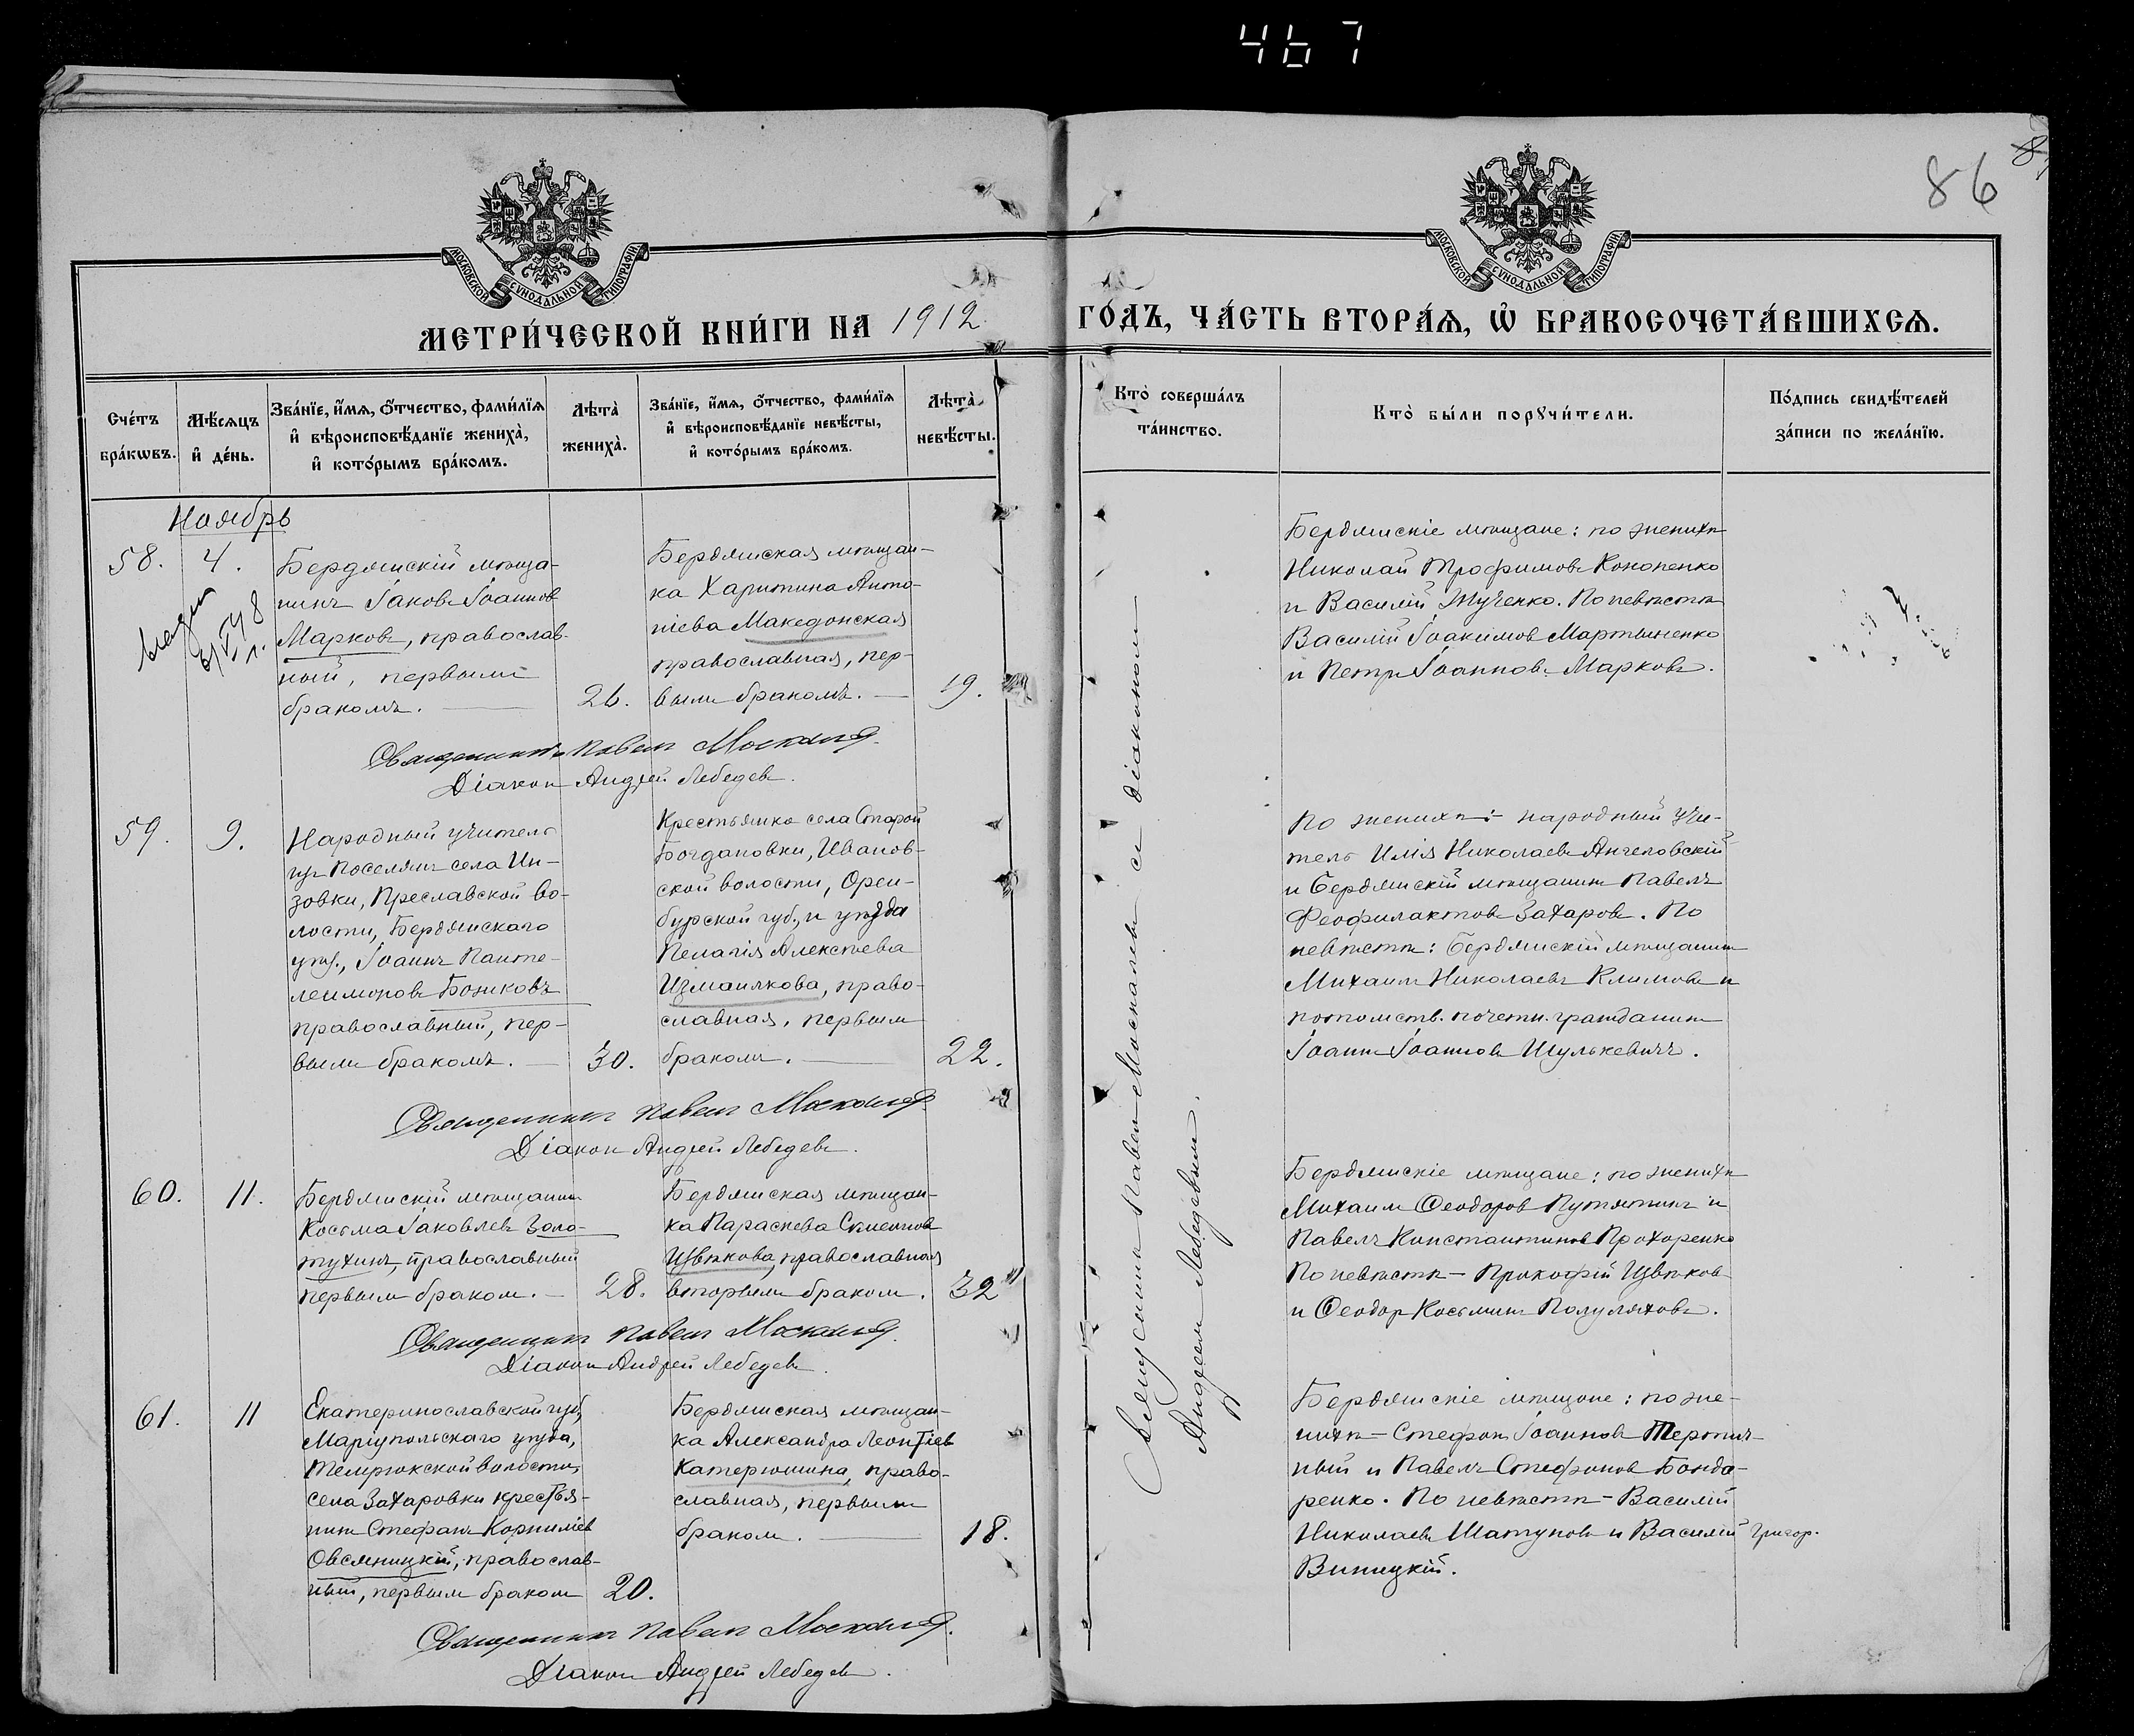 467
86
МОСКОВСКОЙ СѴНОДАЛЬНОЙ ТИПОГРАФІИ
МОСКОВСКОЙ СѴНОДАЛЬНОЙ ТИПОГРАФІИ
МЕТРИ́ЧЕСКОЙ КНИ́ГИ НА 1912
ГО́ДЪ, ЧА́СТЬ ВТОРА́Ѧ, Ѡ҆ БРАКОСОЧЕТА́ВШИХСѦ.
Сче́тъ
бра́кѡвъ.
Мѣ́сѧцъ
и҆ де́нь.
Зва́нїе, и҆́мѧ, ѻ҆́тчество, фами́лїѧ
и҆ вѣроисповѣ́данїе жениха̀,
и҆ кото́рымъ бра́комъ.
Лѣта̀
жениха̀.
Зва́нїе, и҆́мѧ, ѻ҆́тчество, фами́лїѧ
и҆ вѣроисповѣ́данїе невѣ́сты,
и҆ кото́рымъ бра́комъ.
Лѣта̀
невѣ́сты.
Кто̀ соверша́лъ
та́инство.
Кто̀ бы́ли порꙋчи́тели.
По́дпись свидѣ́телей
за́писи по жела́нїю.
Ноябрь
58.
4.
Бердянскій мѣща-
нинъ Іаковъ Іоанновъ
Марковъ, православ-
ный, первымъ
бракомъ.
26.
Бердянская мѣщан-
ка Харитина Анто-
ніева Македонская
православная, пер-
вымъ бракомъ.
19.
Бердянскіе мѣщане: по женихѣ
Николай Трофимовъ Кононенко
и Василій Жученко. По невѣстѣ
Василій Іоакимовъ Мартыненко
и Петръ Іоанновъ Марковъ.
Священникъ Павелъ
Діаконъ Андрей Лебедевъ.
59.
9.
Народный учитель
изъ поселянъ села Ин-
зовки, Преславской во-
лости, Бердянскаго
уѣз., Іоаннъ Панте-
леимоновъ Божковъ
православный, пер-
вымъ бракомъ.
30.
Крестьянка села Старой
Богдановки, Иванов-
ской волости, Орен-
бурской губ., и уѣзда
Пелагія Алексѣева
Измаилкова, право-
славная, первымъ
бракомъ.
22.
По женихѣ: народный учи-
тель Илія Николаевъ Ангеловскій
и Бердянскій мѣщанинъ Павелъ
Феофилактовъ Захаровъ. По
невѣстѣ: Бердянскій мѣщанинъ
Михаилъ Николаевъ Климовъ и
потомств. почетн. гражданинъ
Іоаннъ Іоанновъ Шулькевичъ.
Священникъ Павелъ
Діаконъ Андрей Лебедевъ.
60.
11.
Бердянскій мѣщанинъ
Косьма Іаковлевъ Золо-
тухинъ, православный
первымъ бракомъ.
28.
Бердянская мѣщан-
ка Параскева Симеонова
Цвѣткова, православная
вторымъ бракомъ.
32
Бердянскіе мѣщане: по женихѣ
Михаилъ Ѳеодоровъ Путятинъ и
Павелъ Константиновъ Прохоренко
По невѣстѣ – Прокофій Цвѣтковъ
и Ѳеодоръ Косьминъ Полуляховъ.
Священникъ Павелъ
Діаконъ Андрей Лебедевъ.
61.
11
Екатеринославской губ.,
Маріупольскаго уѣзда,
Темрюкской волости,
села Захаровки крестья-
нинъ Стефанъ Корниліевъ
Овсяницкій, православ-
ный, первымъ бракомъ
20.
Бердянская мѣщан-
ка Александра Леонтіев
Катерюшина, право-
славная, первымъ
бракомъ.
18.
Бердянскіе мѣщане: по же-
нихѣ – Стефанъ Іоанновъ Терпич-
ный и Павелъ Стефановъ Бонда-
ренко. По невѣстѣ – Василій
Николаевъ Шатуновъ и Василій Григор.
Виницкій.
Священникъ Павелъ
Діаконъ Андрей Лебедевъ.
Священникъ Павелъ Москалевъ съ діакономъ
Андреемъ Лебедевымъ.